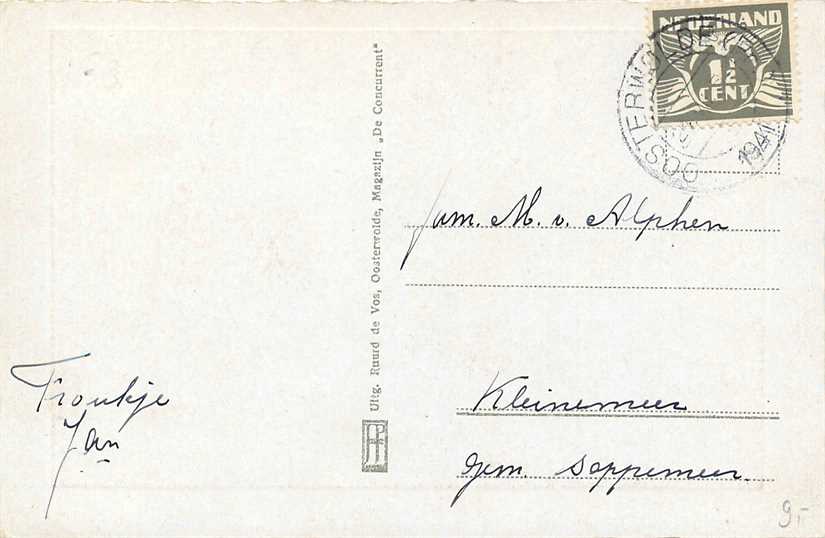 NEDERLAND
1½
CENT
OOSTERWOLDE (
1941
Fam. M. v. Alphen
Kleinemeer
gem. Sappemeer.
Uitg. Ruurd de Vos, Oosterwolde, Magazijn „De Concurrent"
Froukje
Jan
9,-